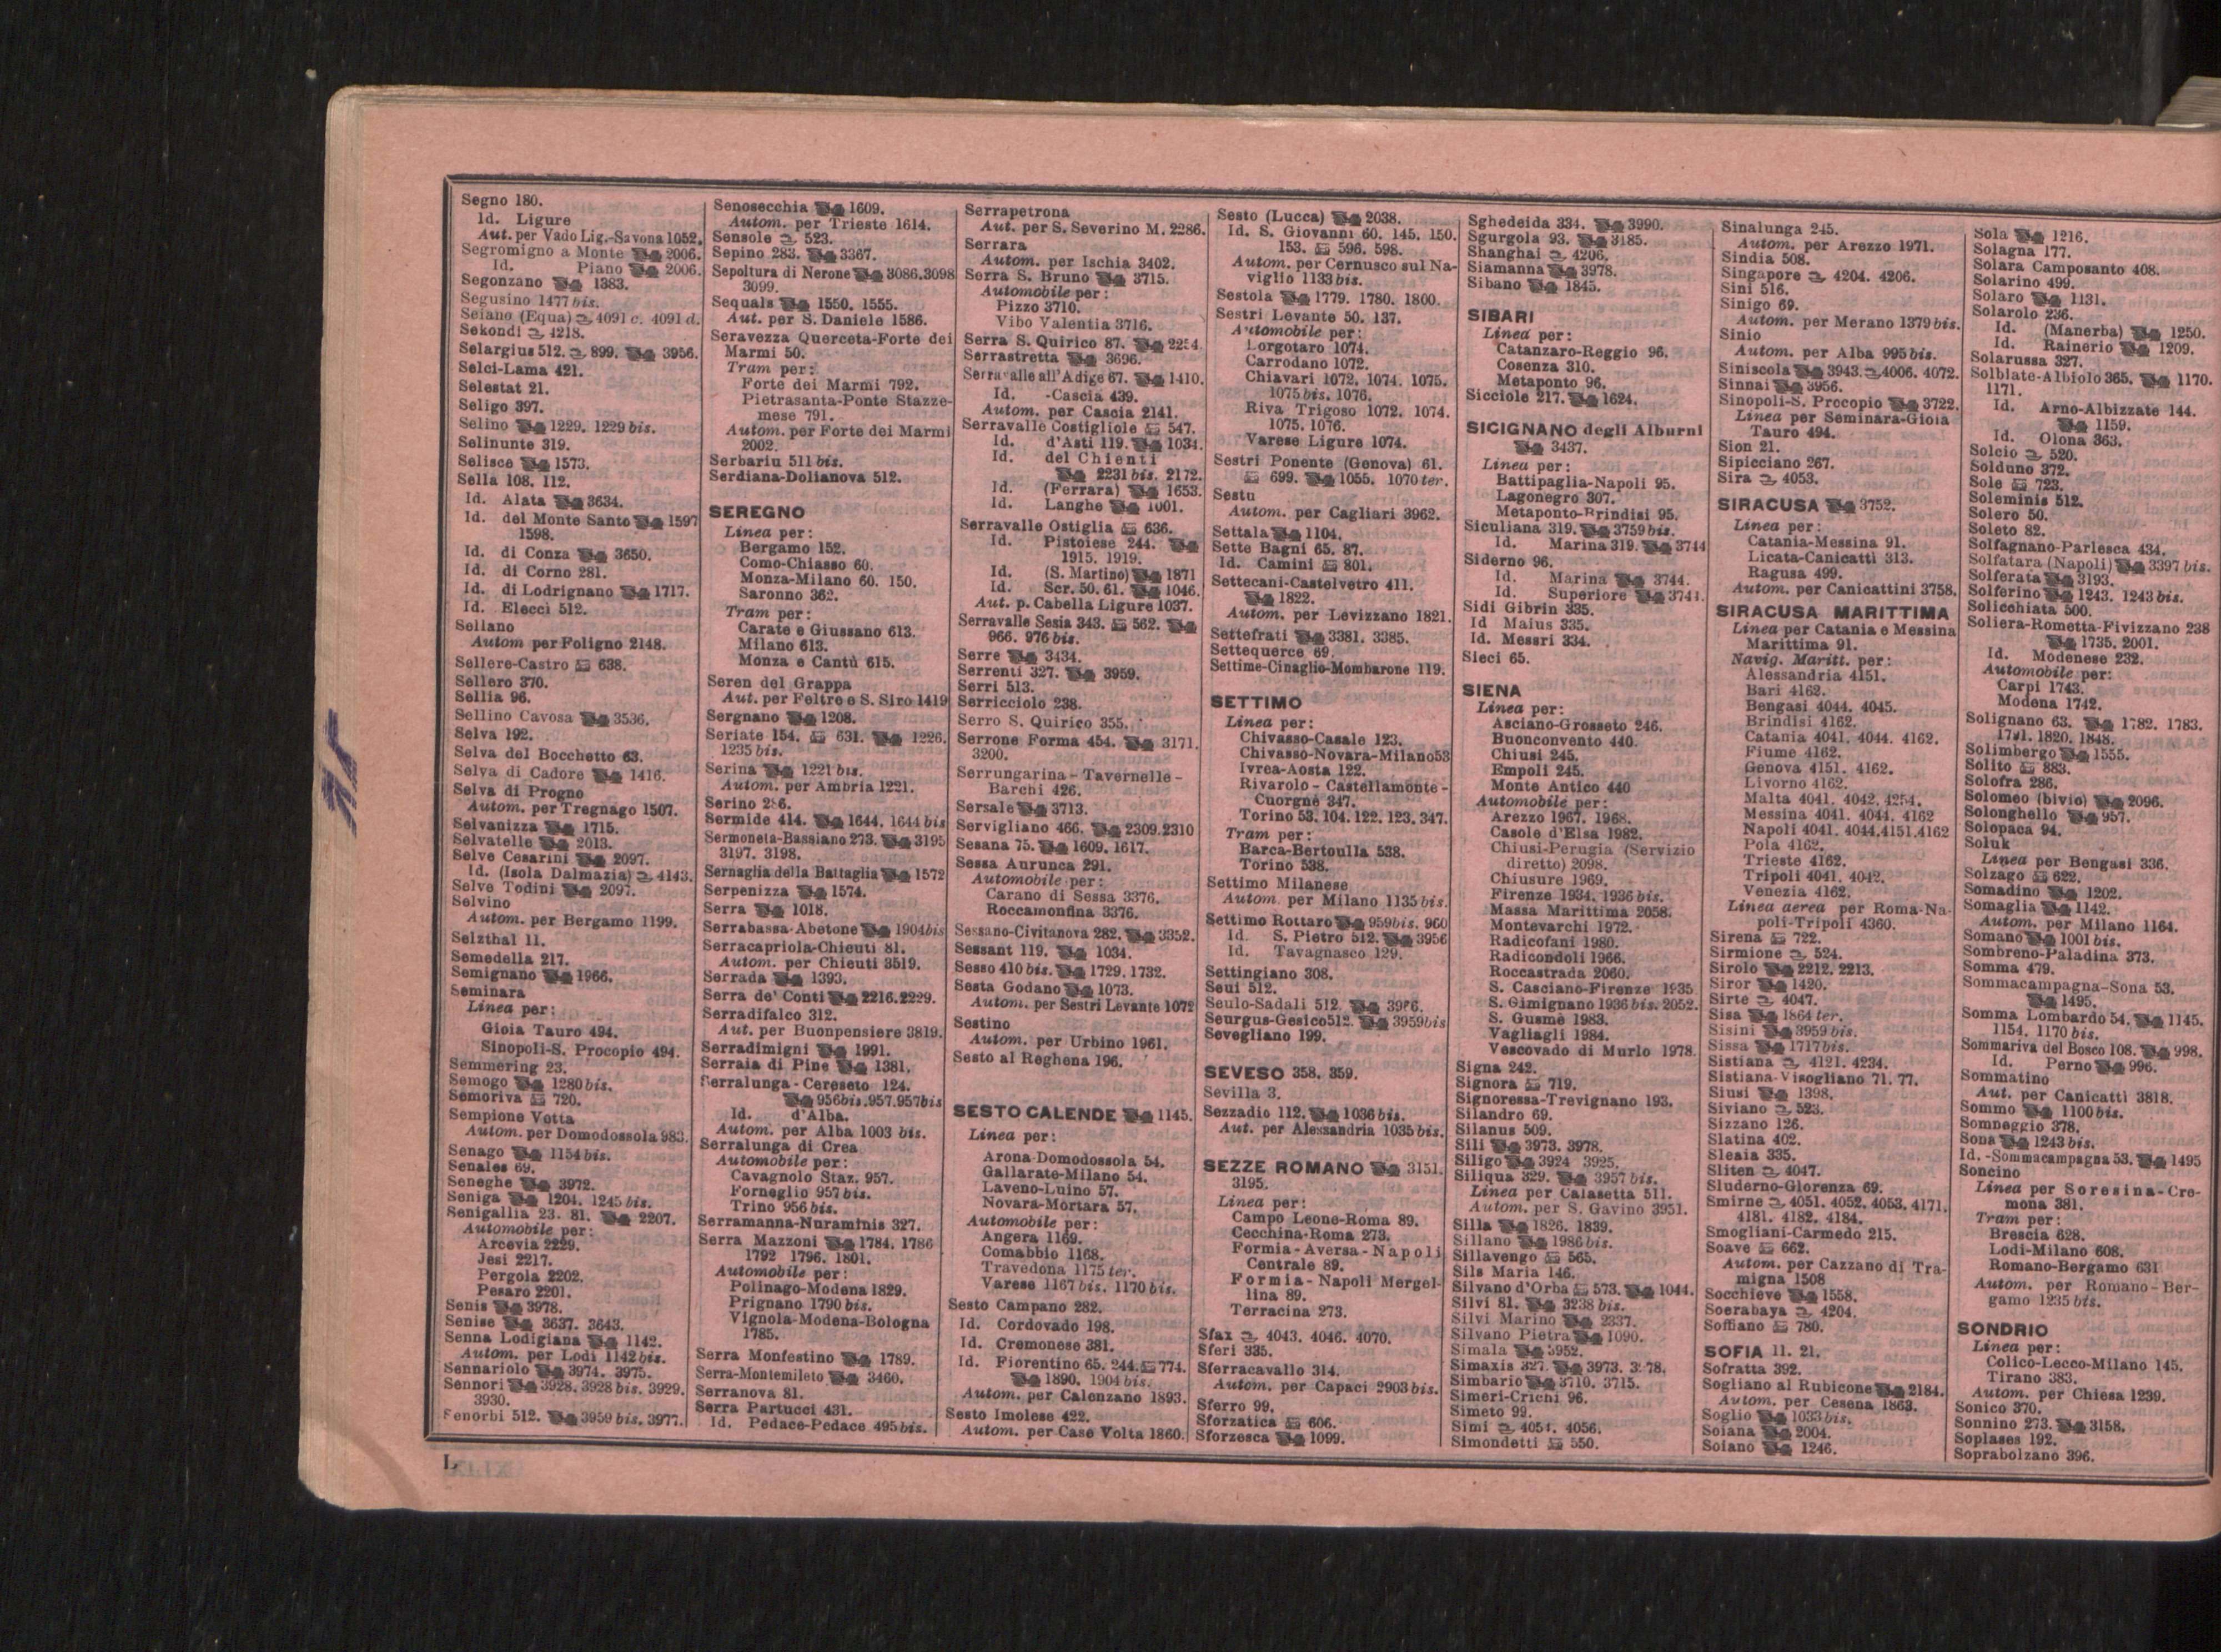 Segno 180.
Id. Ligure
Aut. per Vado Lig.-Savona 1052.
Segromigno a Monte 2006.
Id. Piano 2006.
Segonzano 1383.
Segusino 1477 bis.
Seiano (Equa) 4091 c. 4091 d.
Sekondi 4218.
Selargius 512. 899. 3956.
Selci-Lama 421.
Selestat 21.
Seligo 397.
Selino 1229. 1229 bis.
Selinunte 319.
Selisce 1573.
Sella 108. 112.
Id. Alata 3634.
Id. del Monte Santo 1597
1598.
Id. di Conza 3650.
Id. di Corno 281.
Id. di Lodrignano 1717.
Id. Elecci 512.
Sellano
Autom per Foligno 2148.
Sellere-Castro 638.
Sellero 370.
Sellia 96.
Sellino Cavosa 3536.
Selva 192.
Selva del Bocchetto 63.
Selva di Cadore 1416.
Selva di Progno
Autom. per Tregnago 1507.
Selvanizza 1715.
Selvatelle 2013.
Selve Cesarini 2097.
Id. (Isola Dalmazia) 4143.
Selve Todini 2097.
Selvino
Autom. per Bergamo 1199.
Selzthal 11.
Semedella 217.
Semignano 1966.
Seminara
Linea per:
Gioia Tauro 494.
Sinopoli-S. Procopio 494.
Semmering 23.
Semogo 1280 bis.
Semoriva 720.
Sempione Vetta
Autom. per Domodossola 983.
Senago 1154 bis.
Senales 69.
Seneghe 3972.
Seniga 1204. 1245 bis.
Senigallia 23. 81. 2207.
Automobile per:
Arcevia 2229.
Jesi 2217.
Pergola 2202.
Pesaro 2201.
Senis 3978.
Senise 3637. 3643.
Senna Lodigiana 1142.
Autom. per Lodi 1142 bis.
Sennariolo 3974. 3975.
Sennori 3928. 3928 bis. 3929.
3930.
Senorbi 512. 3959 bis. 3977.
Senosecchia 1609.
Autom. per Trieste 1614.
Sensole 523.
Sepino 283. 3367.
Sepoltura di Nerone 3086.3098
3099.
Sequals 1550. 1555.
Aut. per S. Daniele 1586.
Seravezza Querceta-Forte dei
Marmi 50.
Tram per:
Forte dei Marmi 792.
Pietrasanta-Ponte Stazze-
mese 791.
Autom. per Forte dei Marmi
2002.
Serbariu 511 bis.
Serdiana-Dolianova 512.
SEREGNO
Linea per:
Bergamo 152.
Como-Chiasso 60.
Monza-Milano 60. 150.
Saronno 362.
Tram per:
Carate e Giussano 613.
Milano 613.
Monza e Cantù 615.
Seren del Grappa
Aut. per Feltre e S. Siro 1419
Sergnano 1208.
Seriate 154. 631. 1226.
1235 bis.
Serina 1221 bis.
Autom. per Ambria 1221.
Serino 286.
Sermide 414. 1644. 1644 bis
Sermoneta-Bassiano 273. 3195
3197. 3198.
Sernaglia della Battaglia 1572
Serpenizza 1574.
Serra 1018.
Serrabassa-Abetone 1904 bis
Serracapriola-Chieuti 81.
Autom. per Chieuti 3519.
Serrada 1393.
Serra de' Conti 2216.2229.
Serradifalco 312.
Aut. per Buonpensiere 3819.
Serradimigni 1991.
Serraia di Pine 1381.
Serralunga-Cereseto 124.
956bis.957.957bis
Id. d'Alba.
Autom. per Alba 1003 bis.
Serralunga di Crea
Automobile per:
Cavagnolo Staz. 957.
Forneglio 957 bis.
Trino 956 bis.
Serramanna-Nuraminis 327.
Serra Mazzoni 1784. 1786
1792 1796. 1801.
Automobile per:
Polinago-Modena 1829.
Prignano 1790 bis.
Vignola-Modena-Bologna
1785.
Serra Monfestino 1789.
Serra-Montemileto 3460.
Serranova 81.
Serra Partucci 431.
Id. Pedace-Pedace 495 bis.
Serrapetrona
Aut. per S. Severino M. 2286.
Serrara
Autom. per Ischia 3402.
Serra S. Bruno 3715.
Automobile per:
Pizzo 3710.
Vibo Valentia 3716.
Serra S. Quirico 87. 2254
Serrastretta 3696.
Serravalle all'Adige 67. 1410.
Id. -Cascia 439.
Autom. per Cascia 2141.
Serravalle Costigliole 547.
Id. d'Asti 119. 1034.
Id. del Chienti
2231 bis. 2172.
Id. (Ferrara) 1653.
Id. Langhe 1001.
Serravalle Ostiglia 636.
Id. Pistoiese 244.
1915. 1919.
Id. (S. Martino) 1871
Id. Scr. 50. 61. 1046.
Aut. p. Cabella Ligure 1037.
Serravalle Sesia 343. 562.
966. 976 bis.
Serre 3434.
Serrenti 327. 3959.
Serri 513.
Serricciolo 238.
Serro S. Quirico 355.
Serrone Forma 454. 3171.
3200.
Serrungarina-Tavernelle-
Barchi 426.
Sersale 3713.
Servigliano 466. 2309.2310
Sesana 75. 1609. 1617.
Sessa Aurunca 291.
Automobile per:
Carano di Sessa 3376.
Roccamonfina 3376.
Sessano-Civitanova 282. 3352.
Sessant 119. 1034.
Sesso 410 bis. 1729. 1732.
Sesta Godano 1073.
Autom. per Sestri Levante 1072
Sestino
Autom. per Urbino 1961.
Sesto al Reghena 196.
SESTO CALENDE 1145.
Linea per:
Arona-Domodossola 54.
Gallarate-Milano 54.
Laveno-Luino 57.
Novara-Mortara 57.
Automobile per:
Angera 1169.
Comabbio 1168.
Travedona 1175 ter.
Varese 1167 bis. 1170 bis.
Sesto Campano 282.
Id. Cordovado 198.
Id. Cremonese 381.
Id. Fiorentino 65. 244. 774.
1890. 1904 bis.
Autom. per Calenzano 1893.
Sesto Imolese 422.
Autom. per Case Volta 1860.
Sesto (Lucca) 2038.
Id. S. Giovanni 60. 145. 150.
153. 596. 598.
Autom. per Cernusco sul Na-
viglio 1133 bis.
Sestola 1779. 1780. 1800.
Sestri Levante 50. 137.
Automobile per:
Borgotaro 1074.
Carrodano 1072.
Chiavari 1072. 1074. 1075.
1075 bis. 1076.
Riva Trigoso 1072. 1074.
1075. 1076.
Varese Ligure 1074.
Sestri Ponente (Genova) 61.
699. 1055. 1070 ter.
Sestu
Autom. per Cagliari 3962.
Settala 1104.
Sette Bagni 65. 87.
Id. Camini 801.
Settecani-Castelvetro 411.
1822.
Autom. per Levizzano 1821.
Settefrati 3381. 3385.
Settequerce 69.
Settime-Cinaglio-Mombarone 119.
SETTIMO
Linea per:
Chivasso-Casale 123.
Chivasso-Novara-Milano53
Ivrea-Aosta 122.
Rivarolo-Castellamonte-
Cuorgnè 347.
Torino 53. 104. 122. 123. 347.
Tram per:
Barca-Bertoulla 538.
Torino 538.
Settimo Milanese
Autom. per Milano 1135 bis.
Settimo Rottaro 959bis. 960
Id. S. Pietro 512. 3956
Id. Tavagnasco 129.
Settingiano 308.
Seui 512.
Seulo-Sadali 512. 3976.
Seurgus-Gesico512. 3959bis
Sevegliano 199.
SEVESO 358. 359.
Sevilla 3.
Sezzadio 112. 1036 bis.
Aut. per Alessandria 1035 bis.
SEZZE ROMANO 3151.
3195.
Linea per:
Campo Leone-Roma 89.
Cecchina-Roma 273.
Formia-Aversa-Napoli
Centrale 89.
Formia-Napoli Mergel-
lina 89.
Terracina 273.
Sfax 4043. 4046. 4070.
Sferi 335.
Sferracavallo 314.
Autom. per Capaci 2903 bis.
Sferro 99.
Sforzatica 606.
Sforzesca 1099.
Sghedeida 334. 3990.
Sgurgola 93. 3185.
Shanghai 4206.
Siamanna 3978.
Sibano 1845.
SIBARI
Linea per:
Catanzaro-Reggio 96.
Cosenza 310.
Metaponto 96.
Sicciole 217. 1624.
SICIGNANO degli Alburni
3437.
Linea per:
Battipaglia-Napoli 95.
Lagonegro 307.
Metaponto-Brindisi 95.
Siculiana 319. 3759 bis.
Id. Marina 319. 3744
Siderno 96.
Id. Marina 3744.
Id. Superiore 3744.
Sidi Gibrin 335.
Id Maius 335.
Id. Messri 334.
Sieci 65.
SIENA
Linea per:
Asciano-Grosseto 246.
Buonconvento 440.
Chiusi 245.
Empoli 245.
Monte Antico 440
Automobile per:
Arezzo 1967. 1968.
Casole d'Elsa 1982.
Chiusi-Perugia (Servizio
diretto) 2098.
Chiusure 1969.
Firenze 1934. 1936 bis.
Massa Marittima 2058.
Montevarchi 1972.
Radicofani 1980.
Radicondoli 1966.
Roccastrada 2060.
S. Casciano-Firenze 1935
S. Gimignano 1936 bis. 2052.
S. Gusmè 1983.
Vagliagli 1984.
Vescovado di Murlo 1978.
Signa 242.
Signora 719.
Signoressa-Trevignano 193.
Silandro 69.
Silanus 509.
Sili 3973. 3978.
Siligo 3924 3925.
Siliqua 329. 3957 bis.
Linea per Calasetta 511.
Autom. per S. Gavino 3951.
Silla 1826. 1839.
Sillano 1986 bis.
Sillavengo 565.
Sils Maria 146.
Silvano d'Orba 573. 1044.
Silvi 81. 3238 bis.
Silvi Marino 2337.
Silvano Pietra 1090.
Simala 3952.
Simaxis 327. 3973. 3978.
Simbario 3710. 3715.
Simeri-Crichi 96.
Simeto 99.
Simi 4051. 4056.
Simondetti 550.
Sinalunga 245.
Autom. per Arezzo 1971.
Sindia 508.
Singapore 4204. 4206.
Sini 516.
Sinigo 69.
Autom. per Merano 1379 bis.
Sinio
Autom. per Alba 995 bis.
Siniscola 3943. 4006. 4072.
Sinnai 3956.
Sinopoli-S. Procopio 3722.
Linea per Seminara-Gioia
Tauro 494.
Sion 21.
Sipicciano 267.
Sira 4053.
SIRACUSA 3752.
Linea per:
Catania-Messina 91.
Licata-Canicattì 313.
Ragusa 499.
Autom. per Canicattini 3758.
SIRACUSA MARITTIMA
Linea per Catania e Messina
Marittima 91.
Navig. Maritt. per:
Alessandria 4151.
Bari 4162.
Bengasi 4044. 4045.
Brindisi 4162.
Catania 4041. 4044. 4162.
Fiume 4162.
Genova 4151. 4162.
Livorno 4162.
Malta 4041. 4042. 4254.
Messina 4041. 4044. 4162
Napoli 4041. 4044.4151.4162
Pola 4162.
Trieste 4162.
Tripoli 4041. 4042.
Venezia 4162.
Linea aerea per Roma-Na-
poli-Tripoli 4360.
Sirena 722.
Sirmione 524.
Sirolo 2212. 2213.
Siror 1420.
Sirte 4047.
Sisa 1864 ter.
Sisini 3959 bis.
Sissa 1717 bis.
Sistiana 4121. 4234.
Sistiana-Visogliano 71. 77.
Siusi 1398.
Siviano 523.
Sizzano 126.
Slatina 402.
Sleaia 335.
Sliten 4047.
Sluderno-Glorenza 69.
Smirne 4051. 4052. 4053. 4171.
4181. 4182. 4184.
Smogliani-Carmedo 215.
Soave 662.
Autom. per Cazzano di Tra-
migna 1508
Socchieve 1558.
Soerabaya 4204.
Soffiano 780.
SOFIA 11. 21.
Sofratta 392.
Sogliano al Rubicone 2184.
Autom. per Cesena 1863.
Soglio 1033 bis.
Soiana 2004.
Soiano 1246.
Sola 1216.
Solagna 177.
Solara Camposanto 408.
Solarino 499.
Solaro 1131.
Solarolo 236.
Id. (Manerba) 1250.
Id. Rainerio 1209.
Solarussa 327.
Solbiate-Albiolo 365. 1170.
1171.
Id. Arno-Albizzate 144.
1159.
Id. Olona 363.
Solcio 520.
Solduno 372.
Sole 723.
Soleminis 512.
Solero 50.
Soleto 82.
Solfagnano-Parlesca 434.
Solfatara (Napoli) 3397 bis.
Solferata 3193.
Solferino 1243. 1243 bis.
Solicchiata 500.
Soliera-Rometta-Fivizzano 238
1735. 2001.
Id. Modenese 232.
Automobile per:
Carpi 1743.
Modena 1742.
Solignano 63. 1782. 1783.
1791. 1820. 1848.
Solimbergo 1555.
Solito 883.
Solofra 286.
Solomeo (bivio) 2096.
Solonghello 957.
Solopaca 94.
Soluk
Linea per Bengasi 336.
Solzago 622.
Somadino 1202.
Somaglia 1142.
Autom. per Milano 1164.
Somano 1001 bis.
Sombreno-Paladina 373.
Somma 479.
Sommacampagna-Sona 53.
1495.
Somma Lombardo 54. 1145.
1154. 1170 bis.
Sommariva del Bosco 108. 998.
Id. Perno 996.
Sommatino
Aut. per Canicattì 3818.
Sommo 1100 bis.
Somneggio 378.
Sona 1243 bis.
Id. -Sommacampagna 53. 1495
Soncino
Linea per Soresina-Cre-
mona 381.
Tram per:
Brescia 628.
Lodi-Milano 608.
Romano-Bergamo 631
Autom. per Romano-Ber-
gamo 1235 bis.
SONDRIO
Linea per:
Colico-Lecco-Milano 145.
Tirano 383.
Autom. per Chiesa 1239.
Sonico 370.
Sonnino 273. 3158.
Soplases 192.
Soprabolzano 396.
L